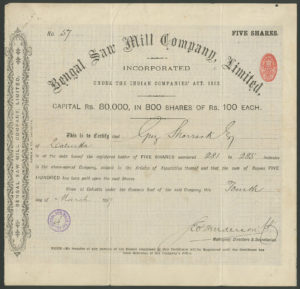 No. 57
FIVE SHARES.
Bengal Saw Mill Company, Limited.
INCORPORATED
UNDER THE INDIAN COMPANIES' ACT, 1913
CAPITAL Rs. 80,000, IN 800 SHARES OF Rs. 100 EACH.
This is to Certify that Guy Shorrock Esq
of Calcutta
is at the date hereof the registered holder of FIVE SHARES numbered 281 to 285 inclusive
in the above-named Company, subject to the Articles of Association thereof and that the sum of Rupees FIVE
HUNDRED has been paid upon the said Shares.
Given at Calcutta under the Common Seal of the said Company this Fourth
day of March
Managing Directors & Secretaries.
NOTE.—No transfer of any portion of the Shares comprised in this Certificate will be Registered until the Certificate has
been delivered at the Company's Office.
BENGAL SAW MILL COMPANY, LIMITED.